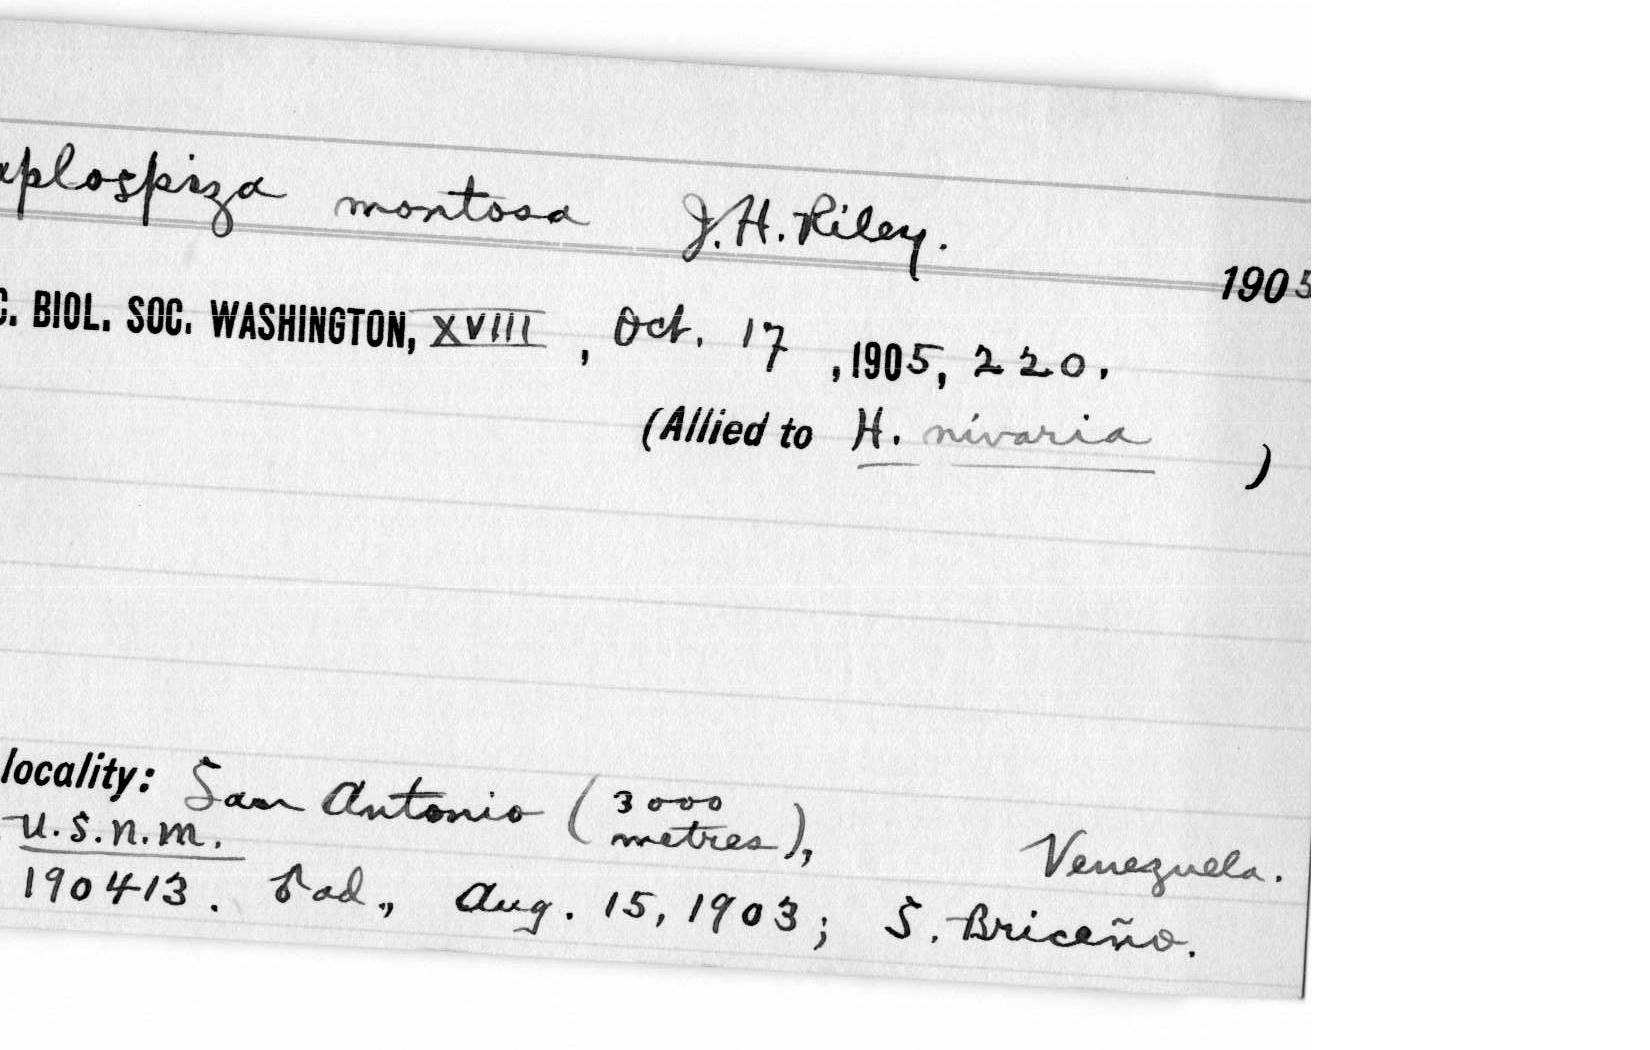 aplospiza montosa J.H. Riley.
1905
C. BIOL. SOC. WASHINGTON, XVIII, Oct. 17, 1905, 220.
(Allied to H. nivaria)
locality: San Antonio (3000 metres), Venezuela.
U.S.N.M.
190413. ♂ad., Aug. 15, 1903; S. Briceño.